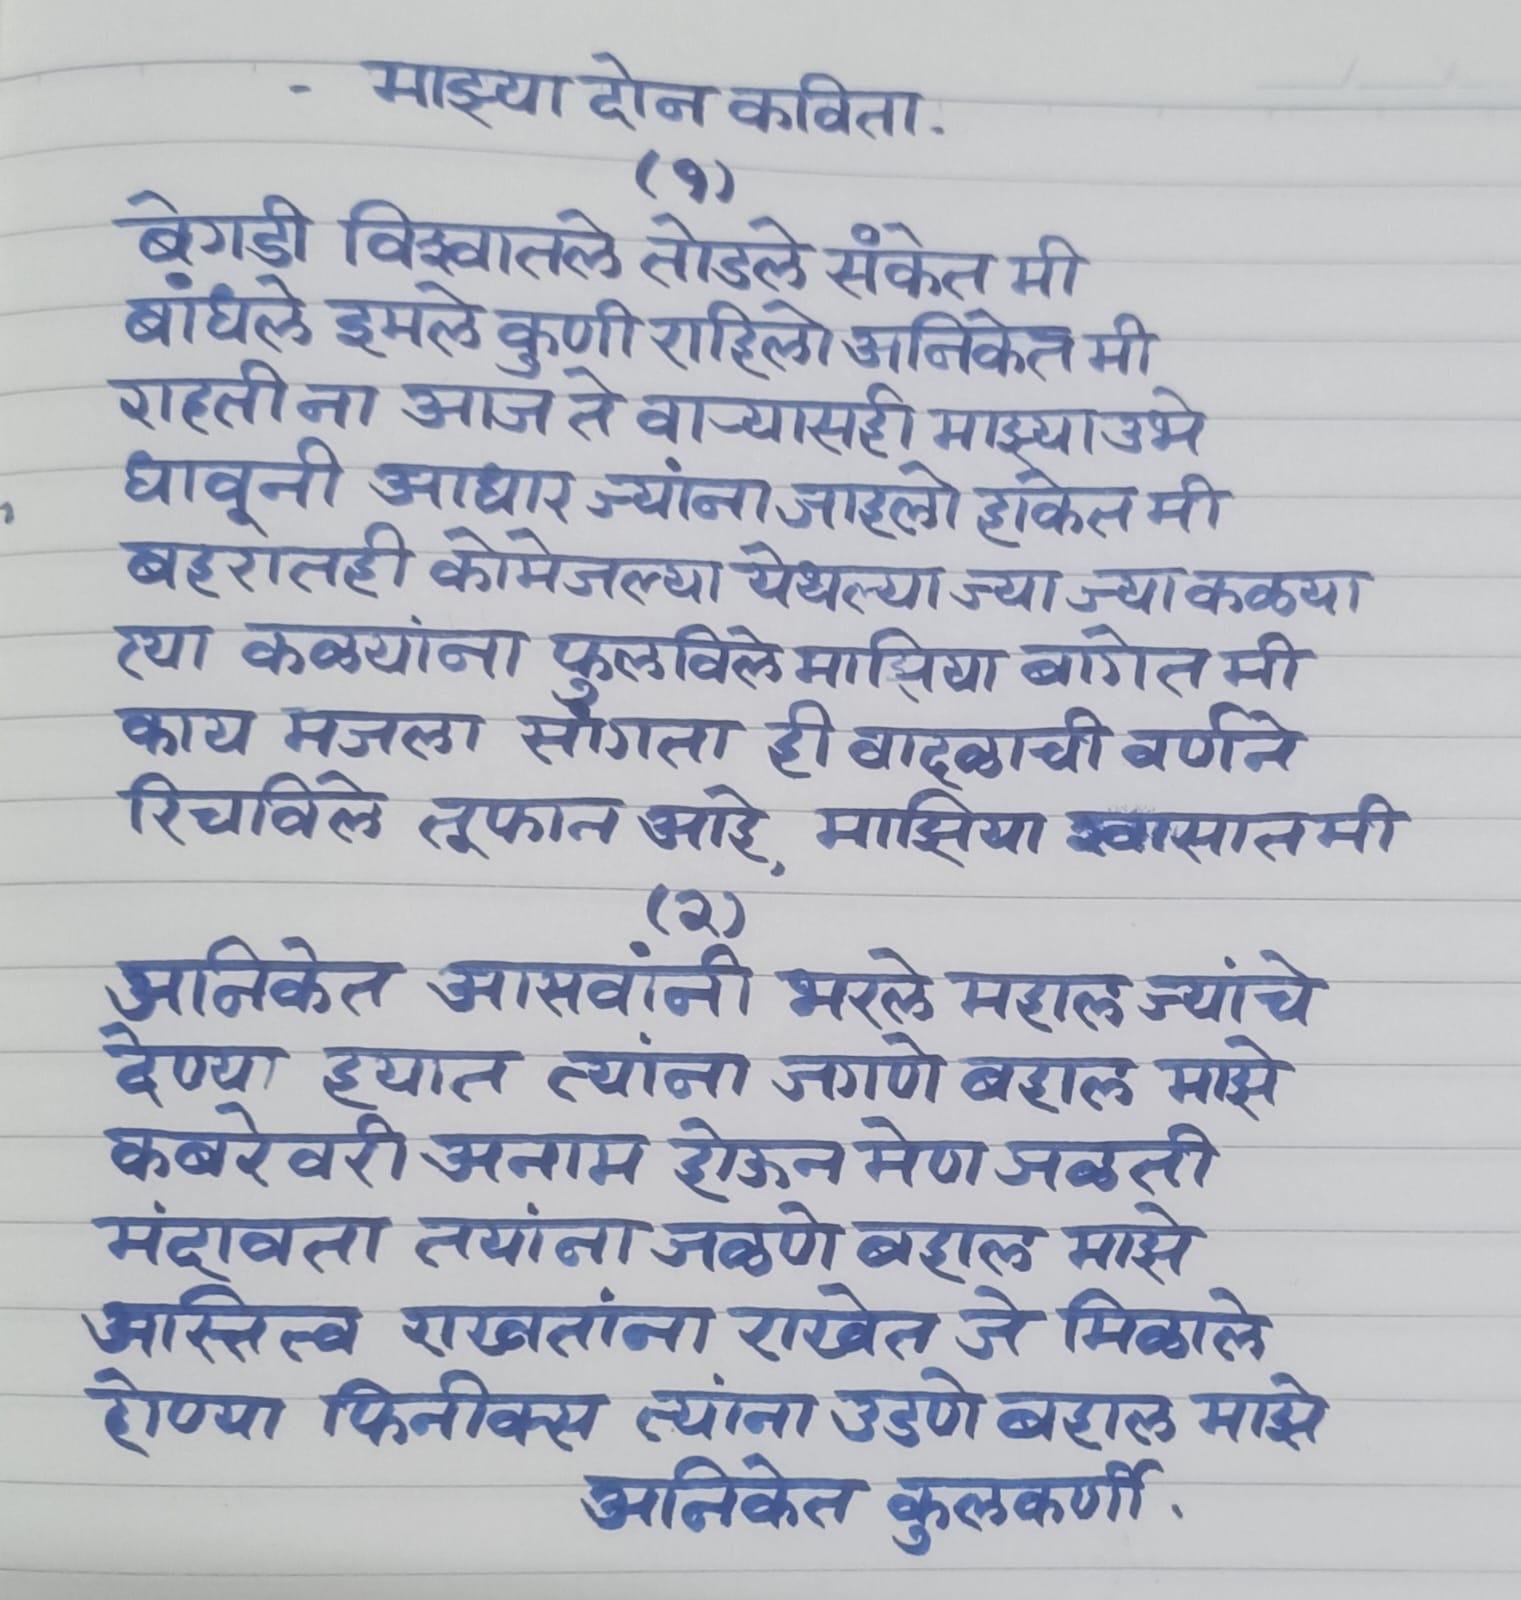 - माझ्या दोन कविता.
(१)
बेगडी विश्वातले तोडले संकेत मी
बांधले इमले कुणी राहिलो अनिकेत मी
राहती ना आज ते वाऱ्यासही माझ्या उभे
धावूनी आधार ज्यांना जाहलो हाकेत मी
बहरातही कोमेजल्या येथल्या ज्या ज्या कळ्या
त्या कळ्यांना फुलविले माझिया बागेत मी
काय मजला सांगता ही वादळाची वर्णने
रिचविले तूफान आहे, माझिया श्वासात मी
(२)
अनिकेत आसवांनी भरले महाल ज्यांचे
देण्या हयात त्यांना जगणे बहाल माझे
कबरेवरी अनाम होऊन मेण जळती
मंदावता तयांना जळणे बहाल माझे
अस्तित्व राखतांना राखेत जे मिळाले
होण्या फिनीक्स त्यांना उडणे बहाल माझे
अनिकेत कुलकर्णी.